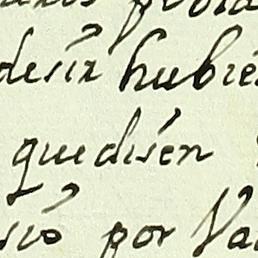 desir hubie
que disen
sió por Va